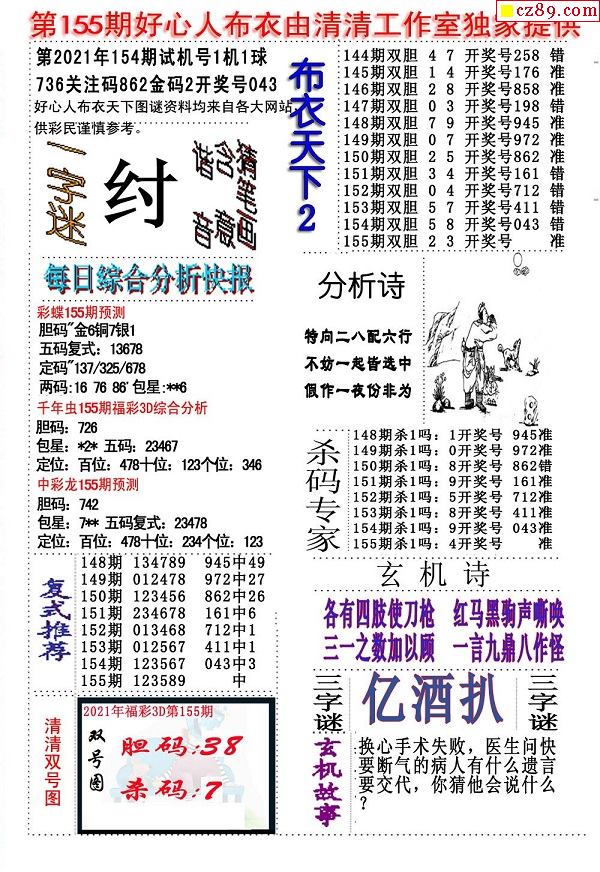 cz89.com
第155期好心人布衣由清清工作室独家提供
第2021年154期试机号1机1球
736关注码862金码2开奖号043
好心人布衣天下图谜资料均来自各大网站,
供彩民谨慎参考。
一字迷
纣
猜笔画
含意
谐音
布衣天下2
144期双胆 4 7 开奖号258 错
145期双胆 1 4 开奖号176 准
146期双胆 2 8 开奖号858 准
147期双胆 0 3 开奖号198 错
148期双胆 7 9 开奖号945 准
149期双胆 0 7 开奖号972 准
150期双胆 2 5 开奖号862 准
151期双胆 3 4 开奖号161 错
152期双胆 0 4 开奖号712 错
153期双胆 5 7 开奖号411 错
154期双胆 5 8 开奖号043 错
155期双胆 2 3 开奖号 准
每日综合分析快报
彩蝶155期预测
胆码"金6铜7银1
五码复式：13678
定码"137/325/678
两码:16 76 86' 包星:**6
千年虫155期福彩3D综合分析
胆码：726
包星：*2* 五码：23467
定位：百位：478十位：123个位：346
中彩龙155期预测
胆码：742
包星：7** 五码复式：23478
定位：百位：478十位：234个位：123
分析诗
特向二八配六行
不妨一起皆选中
假作一夜份非为
杀码专家
148期杀1吗：1开奖号 945准
149期杀1吗：0开奖号 972准
150期杀1吗：8开奖号 862错
151期杀1吗：9开奖号 161准
152期杀1吗：5开奖号 712准
153期杀1吗：8开奖号 411准
154期杀1吗：9开奖号 043准
155期杀1吗：4开奖号 准
复式推荐
148期 134789 945中49
149期 012478 972中27
150期 123456 862中26
151期 234678 161中6
152期 013468 712中1
153期 012567 411中1
154期 123567 043中3
155期 123589 中
玄机诗
各有四肢使刀枪 红马黑驹声嘶唤
三一之数加以顾 一言九鼎八作怪
三字谜
亿酒扒
三字谜
清清双号图
2021年福彩3D第155期
双号图
胆码:38
杀码:7
玄机故事
换心手术失败，医生问快
要断气的病人有什么遗言
要交代，你猜他会说什么
？